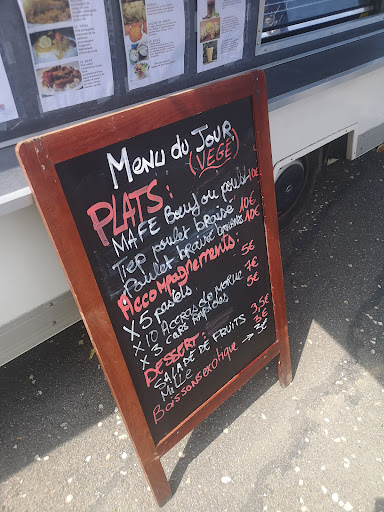 MENU DU JOUR
(VÉGÉ)
PLATS:
MAFE Bœuf ou poulet 10€
Tiep poulet braisé 10€
Poulet braisé 10€
Accompagnements:
X 5 pastels 5€
X 10 Accras de morue 7€
X 3 5€
DESSERT:
SALADE DE FRUITS 3,5€
MILLE 3€
Boissons exotique → 3€